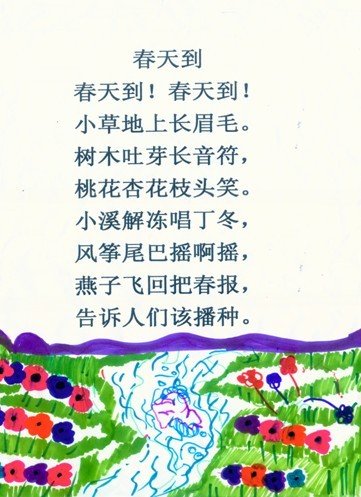 春天到
春天到！春天到！
小草地上长眉毛。
树木吐芽长音符，
桃花杏花枝头笑。
小溪解冻唱丁冬，
风筝尾巴摇啊摇，
燕子飞回把春报，
告诉人们该播种。